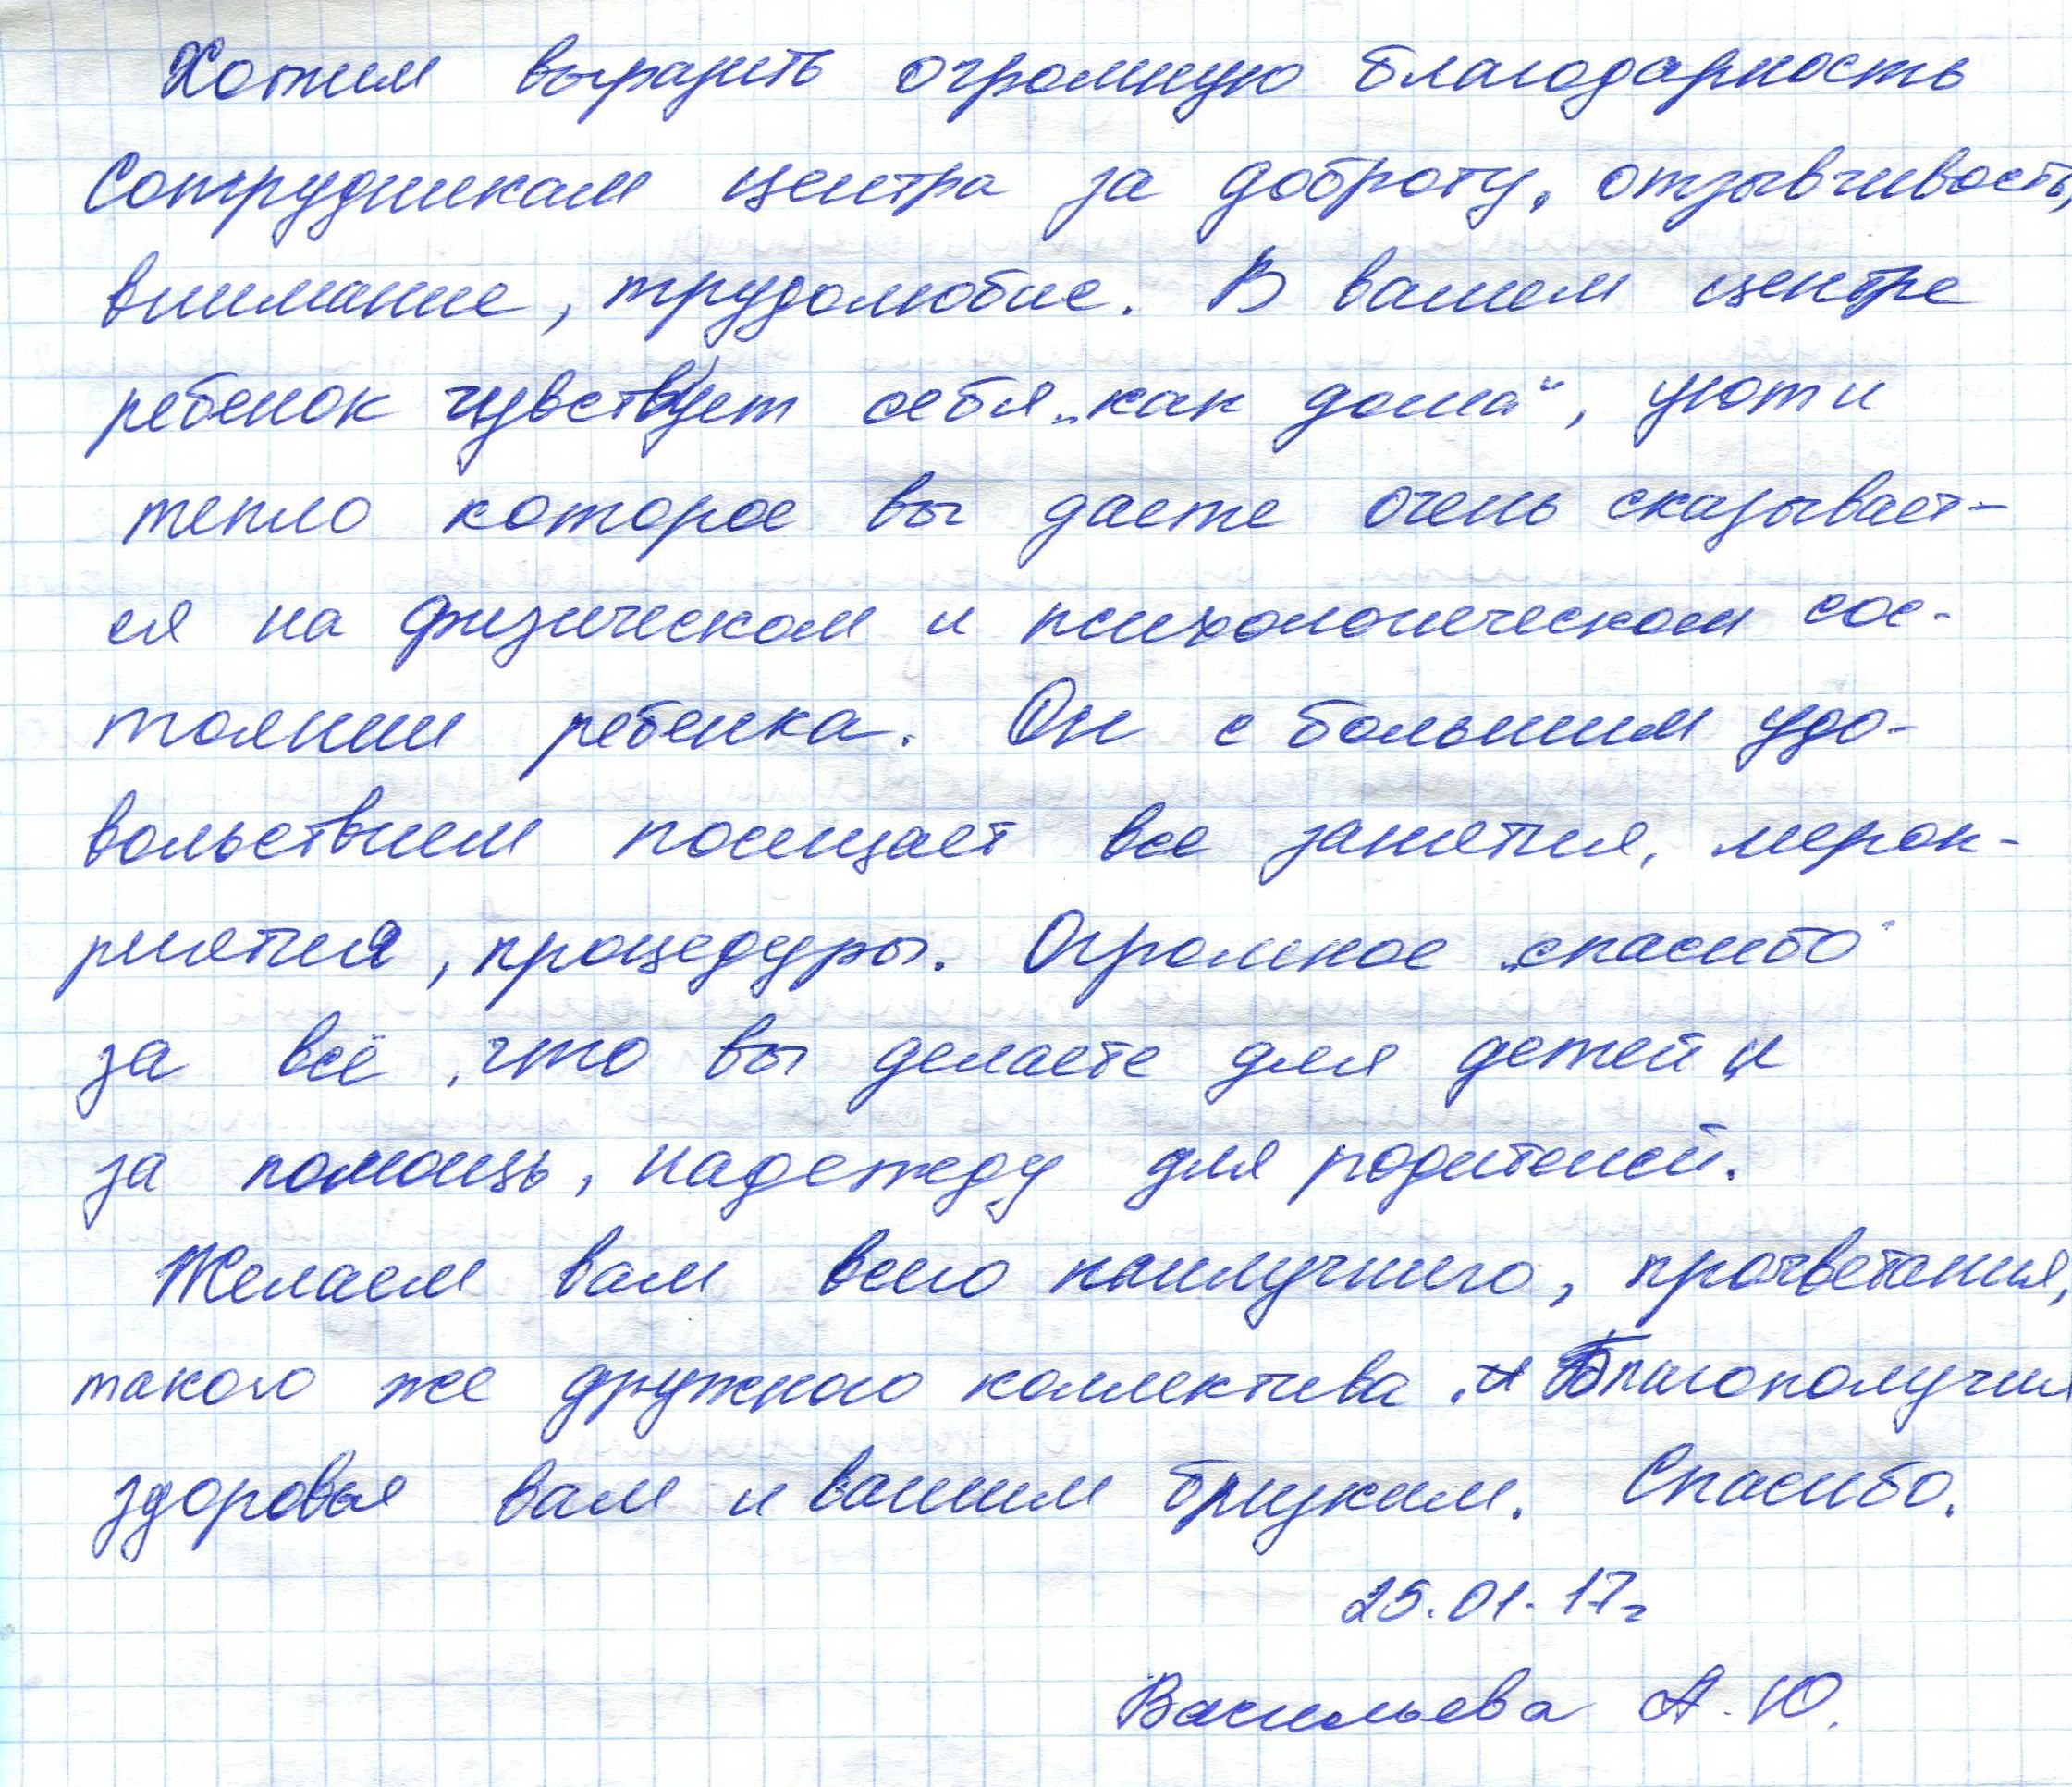 Хотим выразить огромную благодарность
Сотрудникам центра за доброту, отзывчивость,
внимание, трудолюбие. В вашем центре
ребенок чувствует себя „как дома“, уют и
тепло которое вы даете очень сказывает-
ся на физическом и психологическом сос-
тоянии ребенка. Он с большим удо-
вольствием посещает все занятия, мероп-
риятия, процедуры. Огромное „спасибо“
за всё, что вы делаете для детей и
за помощь, надежду для родителей.
Желаем вам всего наилучшего, процветания,
такого же дружного коллектива. Благополучия
здоровья вам и вашим близким. Спасибо.
25.01.17г
Васильева А.Ю.